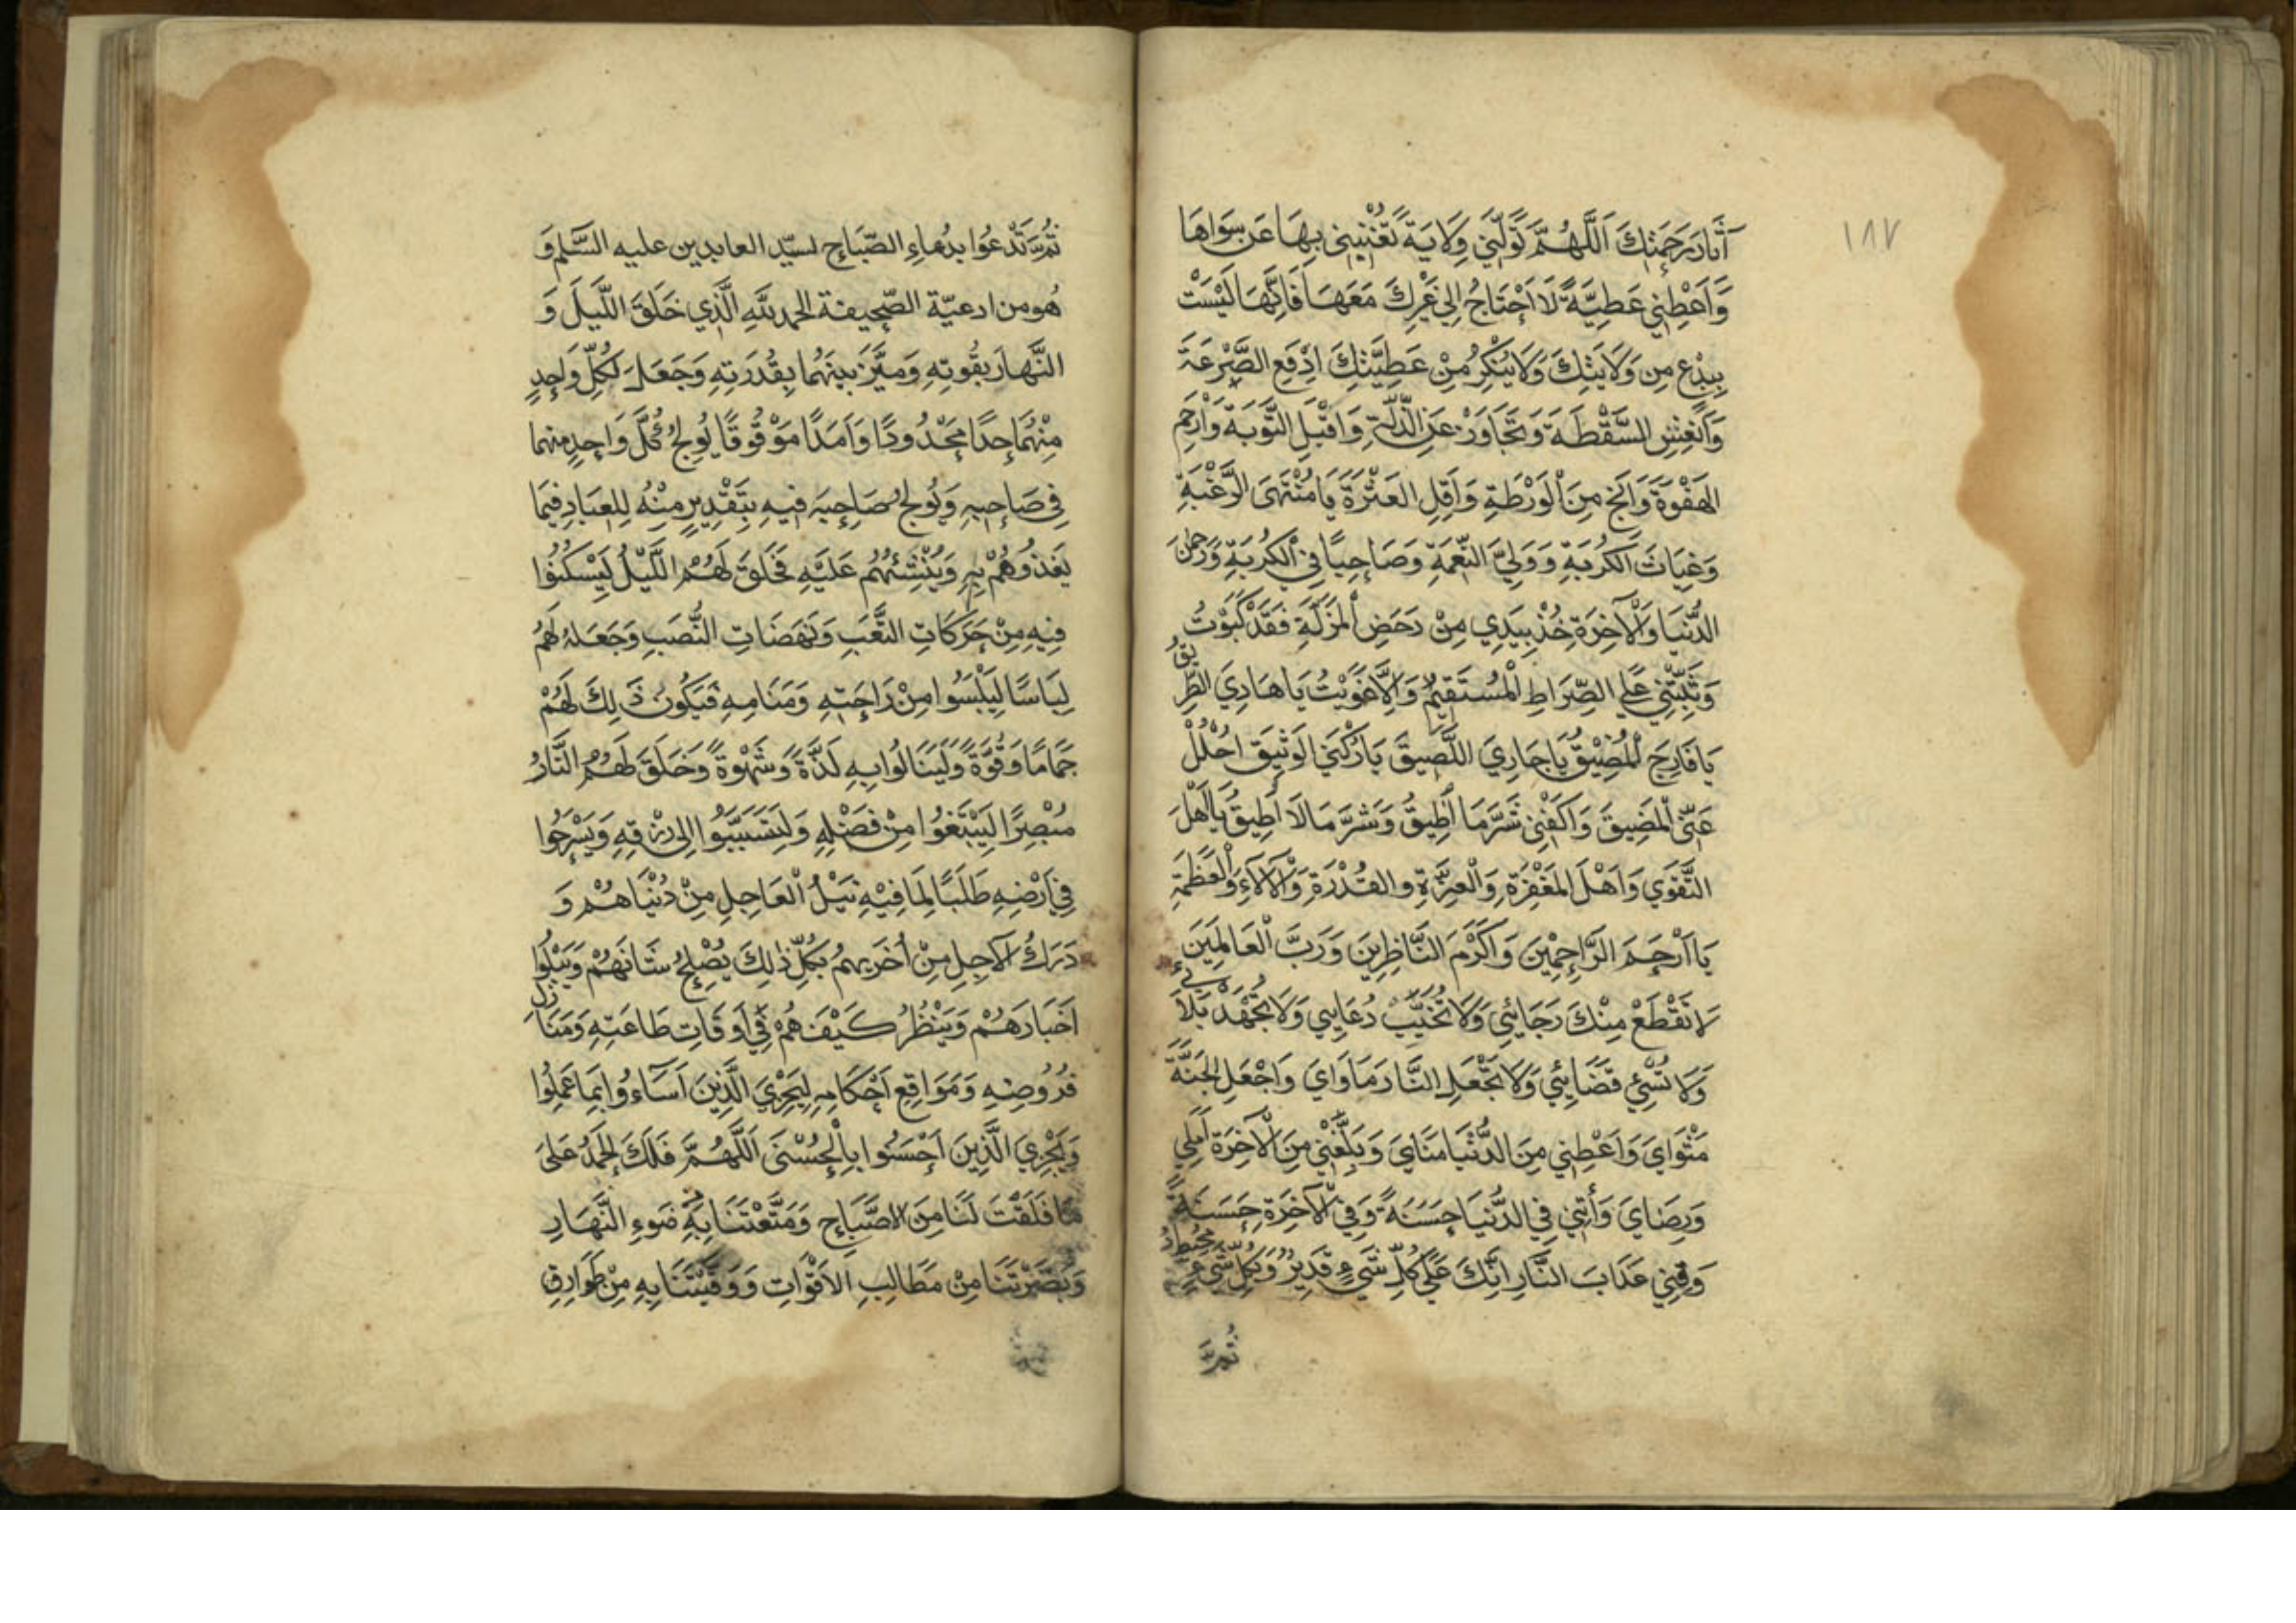 ١٨٧
آثَارَ رَحْمَتِكَ اَللّٰهُمَّ تَوَلَّنِي وِلَايَةً تُغْنِينِي بِهَا عَنْ سِوَاهَا
وَاَعْطِنِي عَطِيَّةً لَا اَحْتَاجُ اِلٰي غَيْرِكَ مَعَهَا فَاِنَّهَا لَيْسَتْ
بِبِدْعٍ مِن وَلَايَتِكَ وَلَا يُنْكَرُ مِنْ عَطِيَّتِكَ اِدْفَعِ الصَّرْعَةَ
وَانْعِشِ السَّقْطَةَ وَتَجَاوَزْ عَنِ الذِّلَّةِ وَاقْبَلِ التَّوْبَةَ وَارْحَمِ
الهَفْوَةَ وَانْجِ مِنَ الْوَرْطَةِ وَاَقِلِ العَثْرَةَ يَا مُنْتَهَى الرَّغْبَةِ
وَغِيَاثَ الكُرْبَةِ وَوَلِيَّ النِّعْمَةِ وَصَاحِبًا فِي الْكُرْبَةِ وَرَحْمٰنَ
الدُّنْيَا وَالْآخِرَةِ خُذْ بِيَدِي مِنْ دَحَضِ الْمَزَلَّةِ فَقَدْ كَبَوْتُ
وَثَبِّتْنِي عَلَي الصِّرَاطِ الْمُسْتَقِيمِ وَاِلَّا غَوَيْتُ يَا هَادِيَ الطَّرِيقِ
يَا فَارِجَ الْمُضِيْقِ يَا جَارِيَ اللَّصِيقَ يَا رُكْنِيَ الوَثِيقَ احْلُلْ
عَنِّي الْمَضِيقَ وَاكْفِنِي شَرَّ مَا اُطِيقُ وَشَرَّ مَا لَا اُطِيقُ يَا اَهْلَ
التَّقْوٰي وَاَهْلَ المَغْفِرَةِ وَالْعِزَّةِ والقُدْرَةِ وَالْآلَاءِ وَالْعَظَمَةِ
يَا اَرْحَمَ الرَّاحِمِيْنَ وَاَكْرَمَ النَّاظِرِينَ وَرَبَّ الْعَالَمِيْنَ
لَا تَقْطَعْ مِنْكَ رَجَائِي وَلَا تُخَيِّبْ دُعَائِي وَلَا تُجْهِدْ بَلَائِي
وَلَا تُسْئِ قَضَائِي وَلَا تَجْعَلِ النَّارَ مَاوَايَ وَاجْعَلِ الجَنَّةَ
مَثْوَايَ وَاَعْطِنِي مِنَ الدُّنْيَا مَنَايَ وَبَلِّغْنِي مِنَ الْآخِرَةِ اَمَلِي
وَرِضَايَ وَآتِنِي فِي الدُّنْيَا حَسَنَةً وَفِي الْآخِرَةِ حَسَنَةً
وَقِنِي عَذَابَ النَّارِ اِنَّكَ عَلٰي كُلِّ شَيءٍ قَدِيرٌ وَبِكُلِّ شَيءٍ مُحِيطٌ
ثُمَّ
ثُمَّ تَدْعُوا بدُعاءِ الصّبَاحِ لسيّد العابدين عليه السَّلم وَ
هُو من ادعيّة الصّحيفة الحمد للّٰهِ الَّذِي خَلَقَ اللَّيلَ وَ
النَّهارَ بِقُوتِهِ وَمَيَّزَ بينهُمَا بِقُدْرَتِهِ وَجَعَلَ لِكُلِّ وَاحِدٍ
مِنْهُمَا حِدًا مَحْدُودًا وَاَمَدًا مَوْقُوفًا يُولِجُ كُلَّ وَاحِدٍ منهما
فِي صَاحِبِهِ وَيُولِجُ صَاحِبَه فيهِ بِتَقْدِيرٍ مِنْهُ لِلعِبَادِ فِيمَا
يَغذُوهُمْ بِهِ وَيُنْشِئُهُم عَلَيْهِ فَخَلَقَ لَهُمُ اللَّيْلَ لِيَسْكُنُوا
فِيهِ مِنْ حَرَكَاتِ التَّعَبِ وَنَهَضَاتِ النُّصَبِ وَجَعَلهُ لَهُمُ
لِبَاسًا لِيَلْبَسُوا مِنْ رَاحَتِهِ وَمَنَامِهِ فَيَكُونَ ذٰلِكَ لَهُمْ
جَمَامًا وَقُوَّةً وَلِيَنَالُوا بِهِ لَذَّةً وَشَهْوَةً وَخَلَقَ لَهُمُ النَّارُ
مُبْصِرًا لِيَبْتَغُوا مِنْ فَضْلِهِ وَلِيَتَسَبَّبُوا اِلٰى رِزْقِهِ وَيَسْرَحُوا
فِي اَرْضِهِ طَلَبًا لِمَا فِيْهِ نَيْلُ الْعَاجِلِ مِنْ دُنْيَاهُمْ وَ
دَرَكُ الآجِلِ مِنْ اُخْرٰيهُمْ بِكُلِّ ذٰلِكَ يُصْلِحُ شَانَهُمْ وَيَبْلُوَا
اَخْبَارَهُمْ وَيَنْظُرُ كَيْفَ هُمْ فِي اَوقَاتِ طَاعَتِهِ وَمَنَازِلِ
فُرُوضِهِ وَمَوَاقِعِ اَحْكَامِهِ لِيَجْزِيَ الَّذِيْنَ اَسَاءُوا بِمَا عَمِلُوا
وَيَجْزِيَ الَّذِينَ اَحْسَنُوا بِالْحُسْنَى اَللّٰهُمَّ فَلَكَ الْحَمْدُ عَلىَ
مَا فَلَقْتَ لَنَا مِنَ الاصَّبَاحِ وَمَتَّعْتَنَا بِهِ ضَوءِ النَّهَارِ
وَبَصَّرْتَنَا مِنْ مَطَالِبِ الاَقْوَاتِ وَوَقَيْتَنَا بِهِ مِنْ طَوَارِقِ